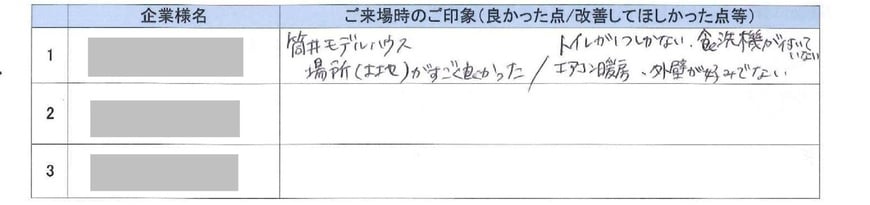 企業様名 ご来場時のご印象(良かった点/改善してほしかった点等)
1 筒井モデルハウス トイレが1つしかない、食洗機が付いていない
場所(土地)がすごく良かった / エアコン暖房、外壁が好みでない
2
3